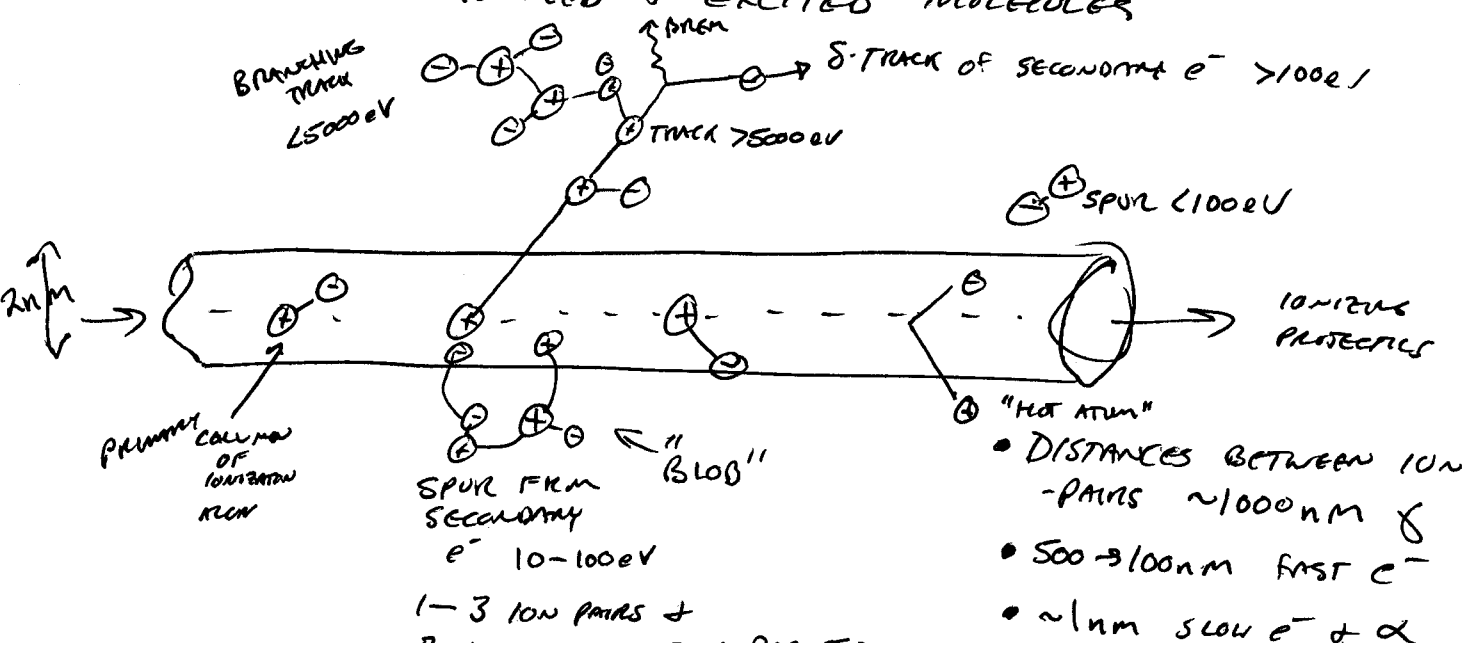 & EXCITED MOLECULES
BREM
BRANCHING
TRACK
<5000 eV
δ-TRACK OF SECONDARY e⁻ >100eV
TRACK >5000 eV
⊖ ⊕ SPUR <100eV
2nm
IONIZING
PROJECTILE
PRIMARY COLUMN
OF
IONIZATION
"BLOB"
SPUR FRM
SECONDARY
e⁻ 10-100eV
1-3 ION PAIRS &
"HOT ATOM"
• DISTANCES BETWEEN ION
-PAIRS ~1000nm γ
• 500→100nm FAST e⁻
• ~1nm SLOW e⁻ & α